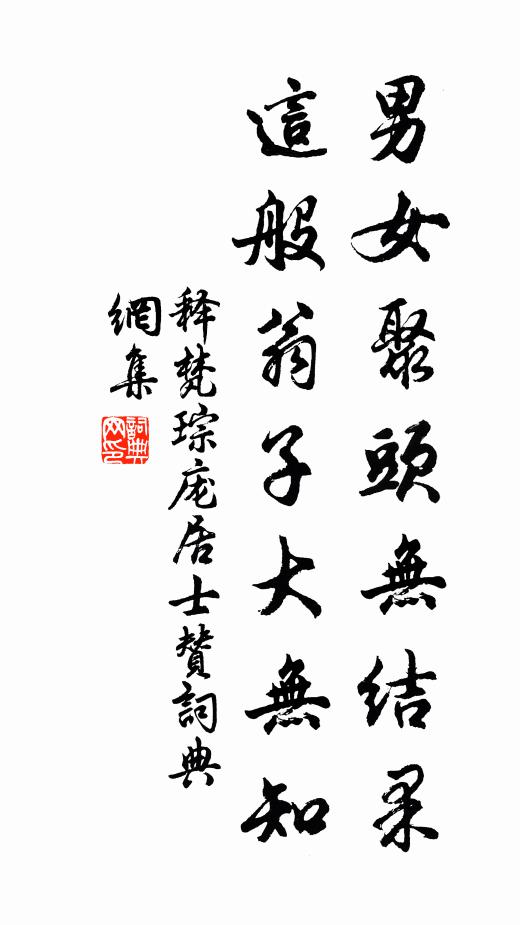 男女聚頭無結果
這般翁子大無知
释梵琮庞居士贊詞典
網集
詞典網印